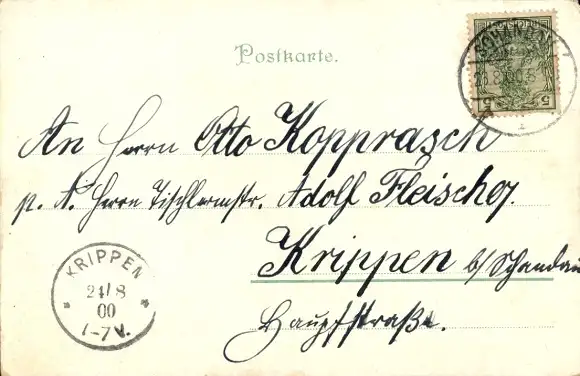 Postkarte.
SCHANDAU
5 5
An Herrn Otto Kopprasch
p. A. Herrn Tischlermstr. Adolf Fleischer.
Krippen b/Schandau
Hauptstraße.
KRIPPEN
24/8
00
1-7V.